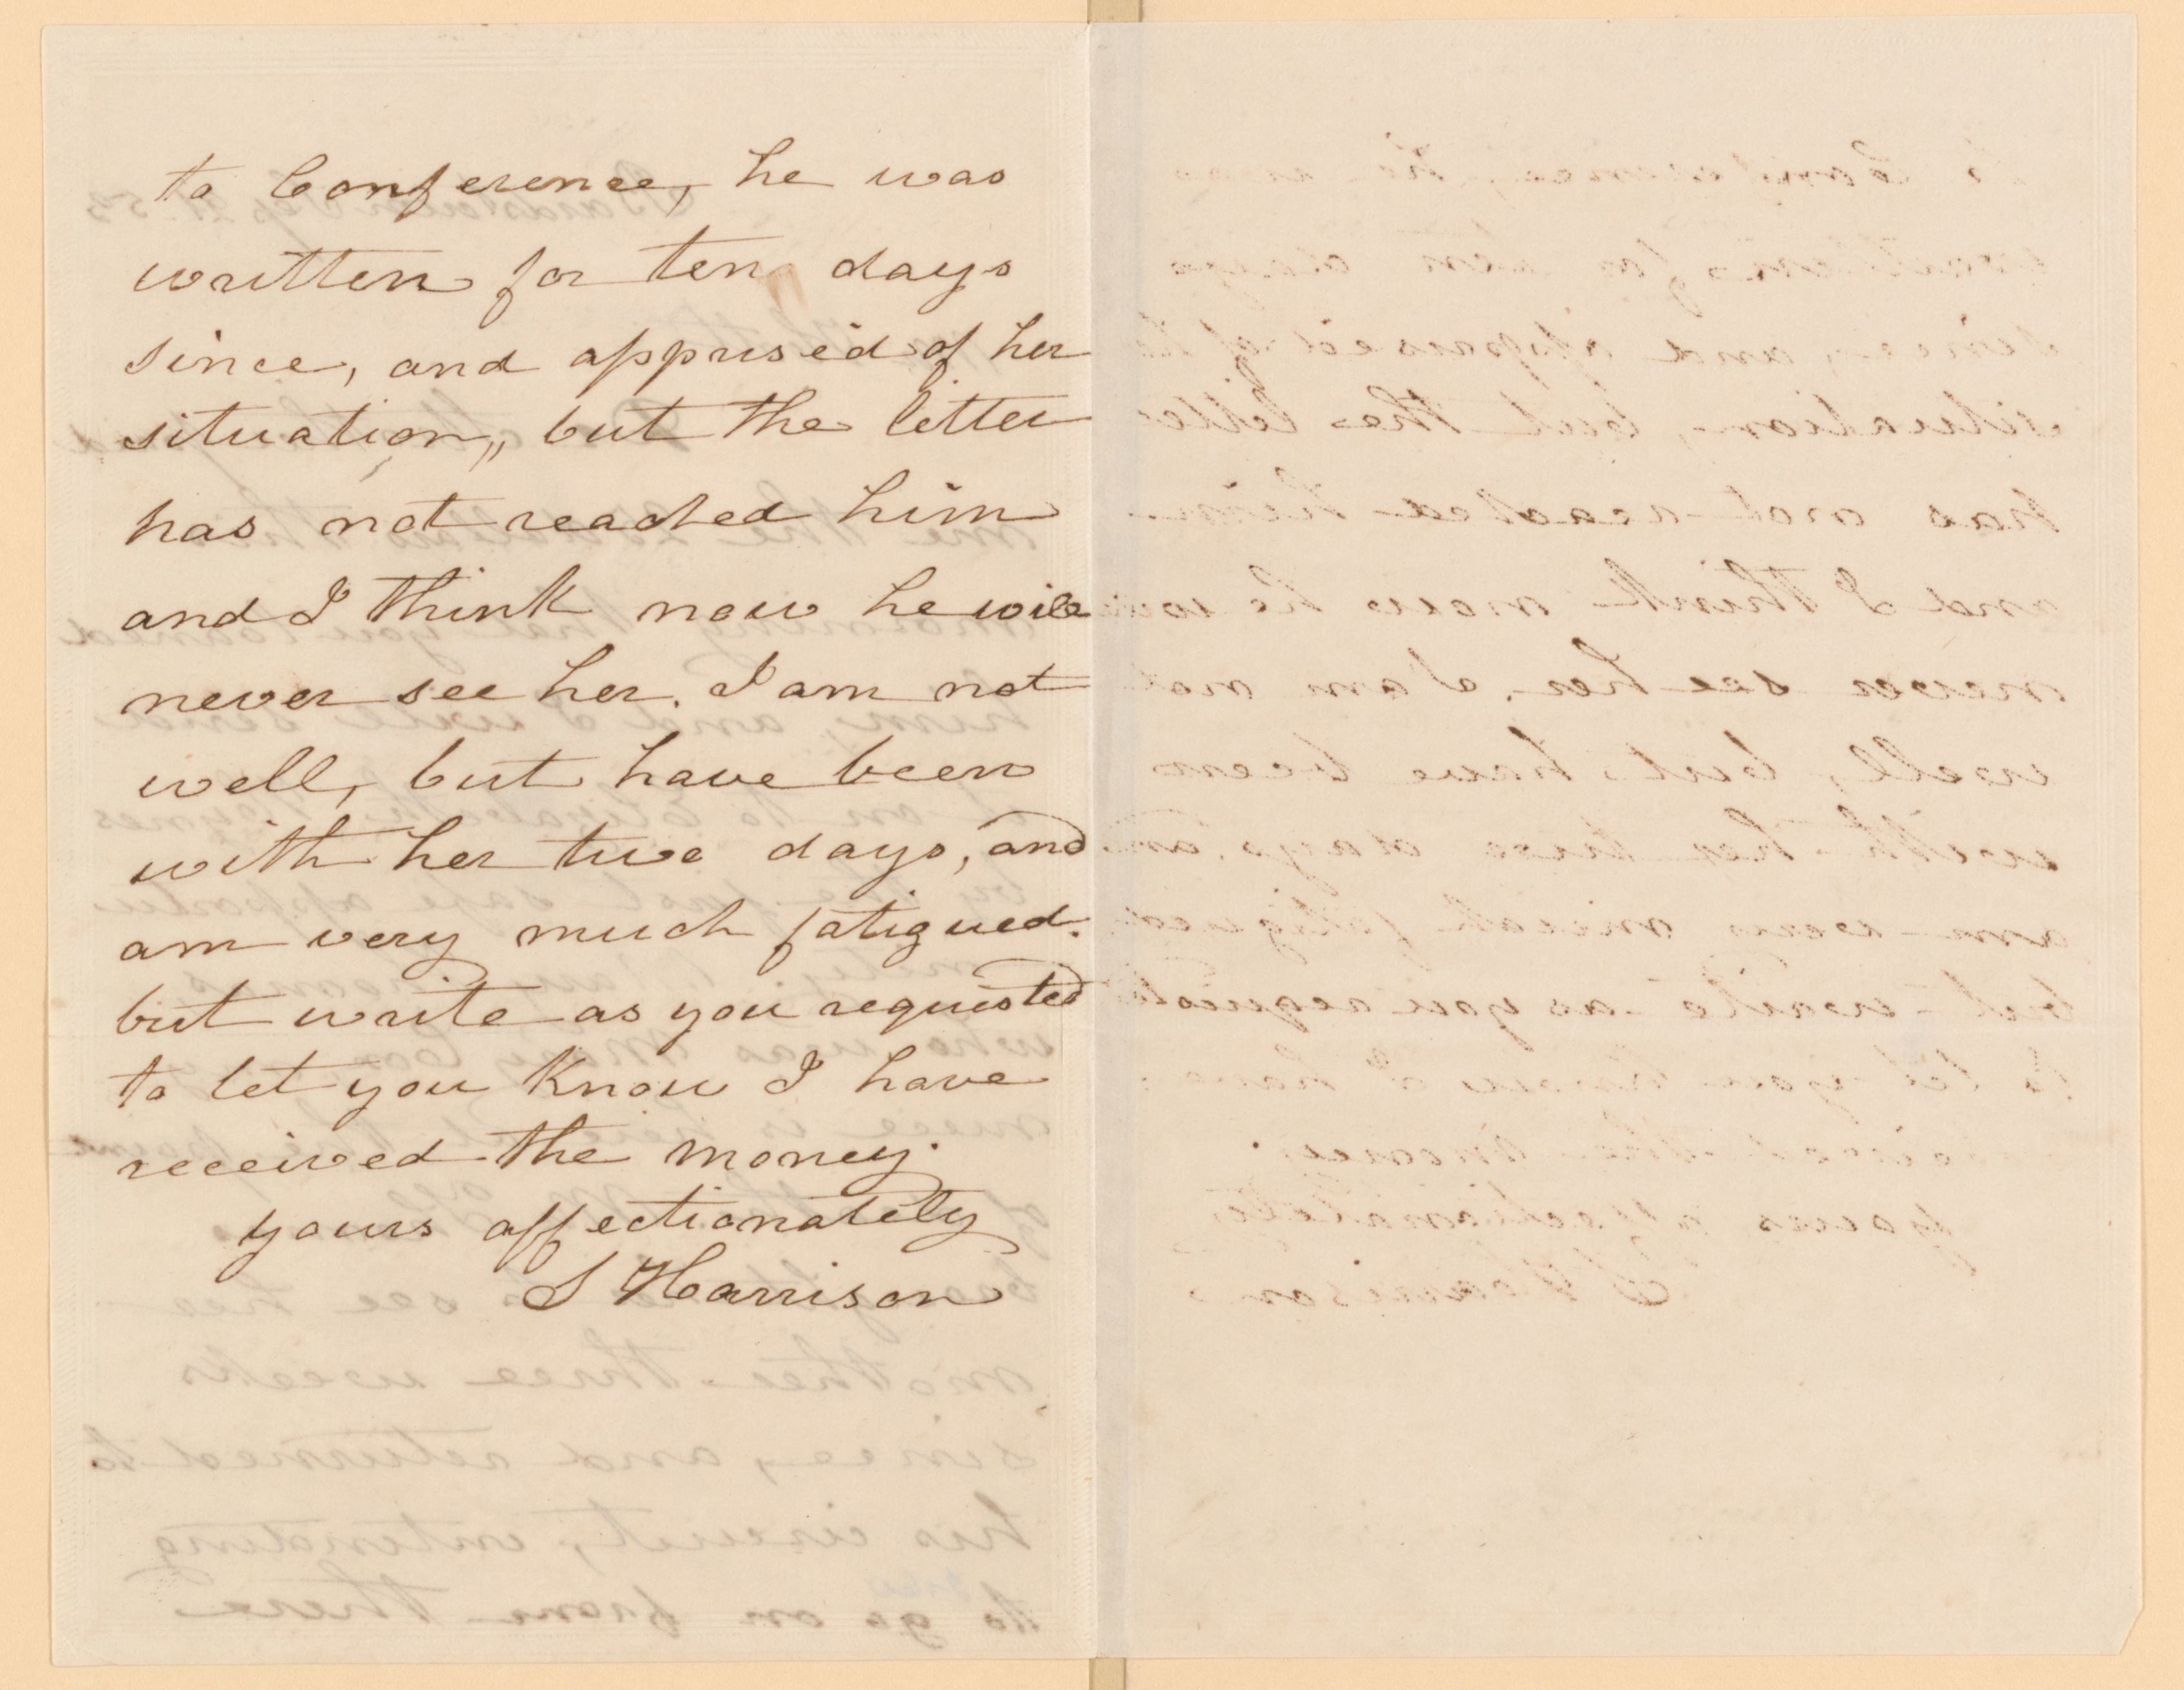 to Conference, he was
written for ten days
since, and apprised of her
situation,, but the letter
has not reached him
and I think now he will
never see her. I am not
well, but have been
with her two days, and
am very much fatigued.
but write as you requested
to let you know I have
received the money.
yours affectionately
S Harrison